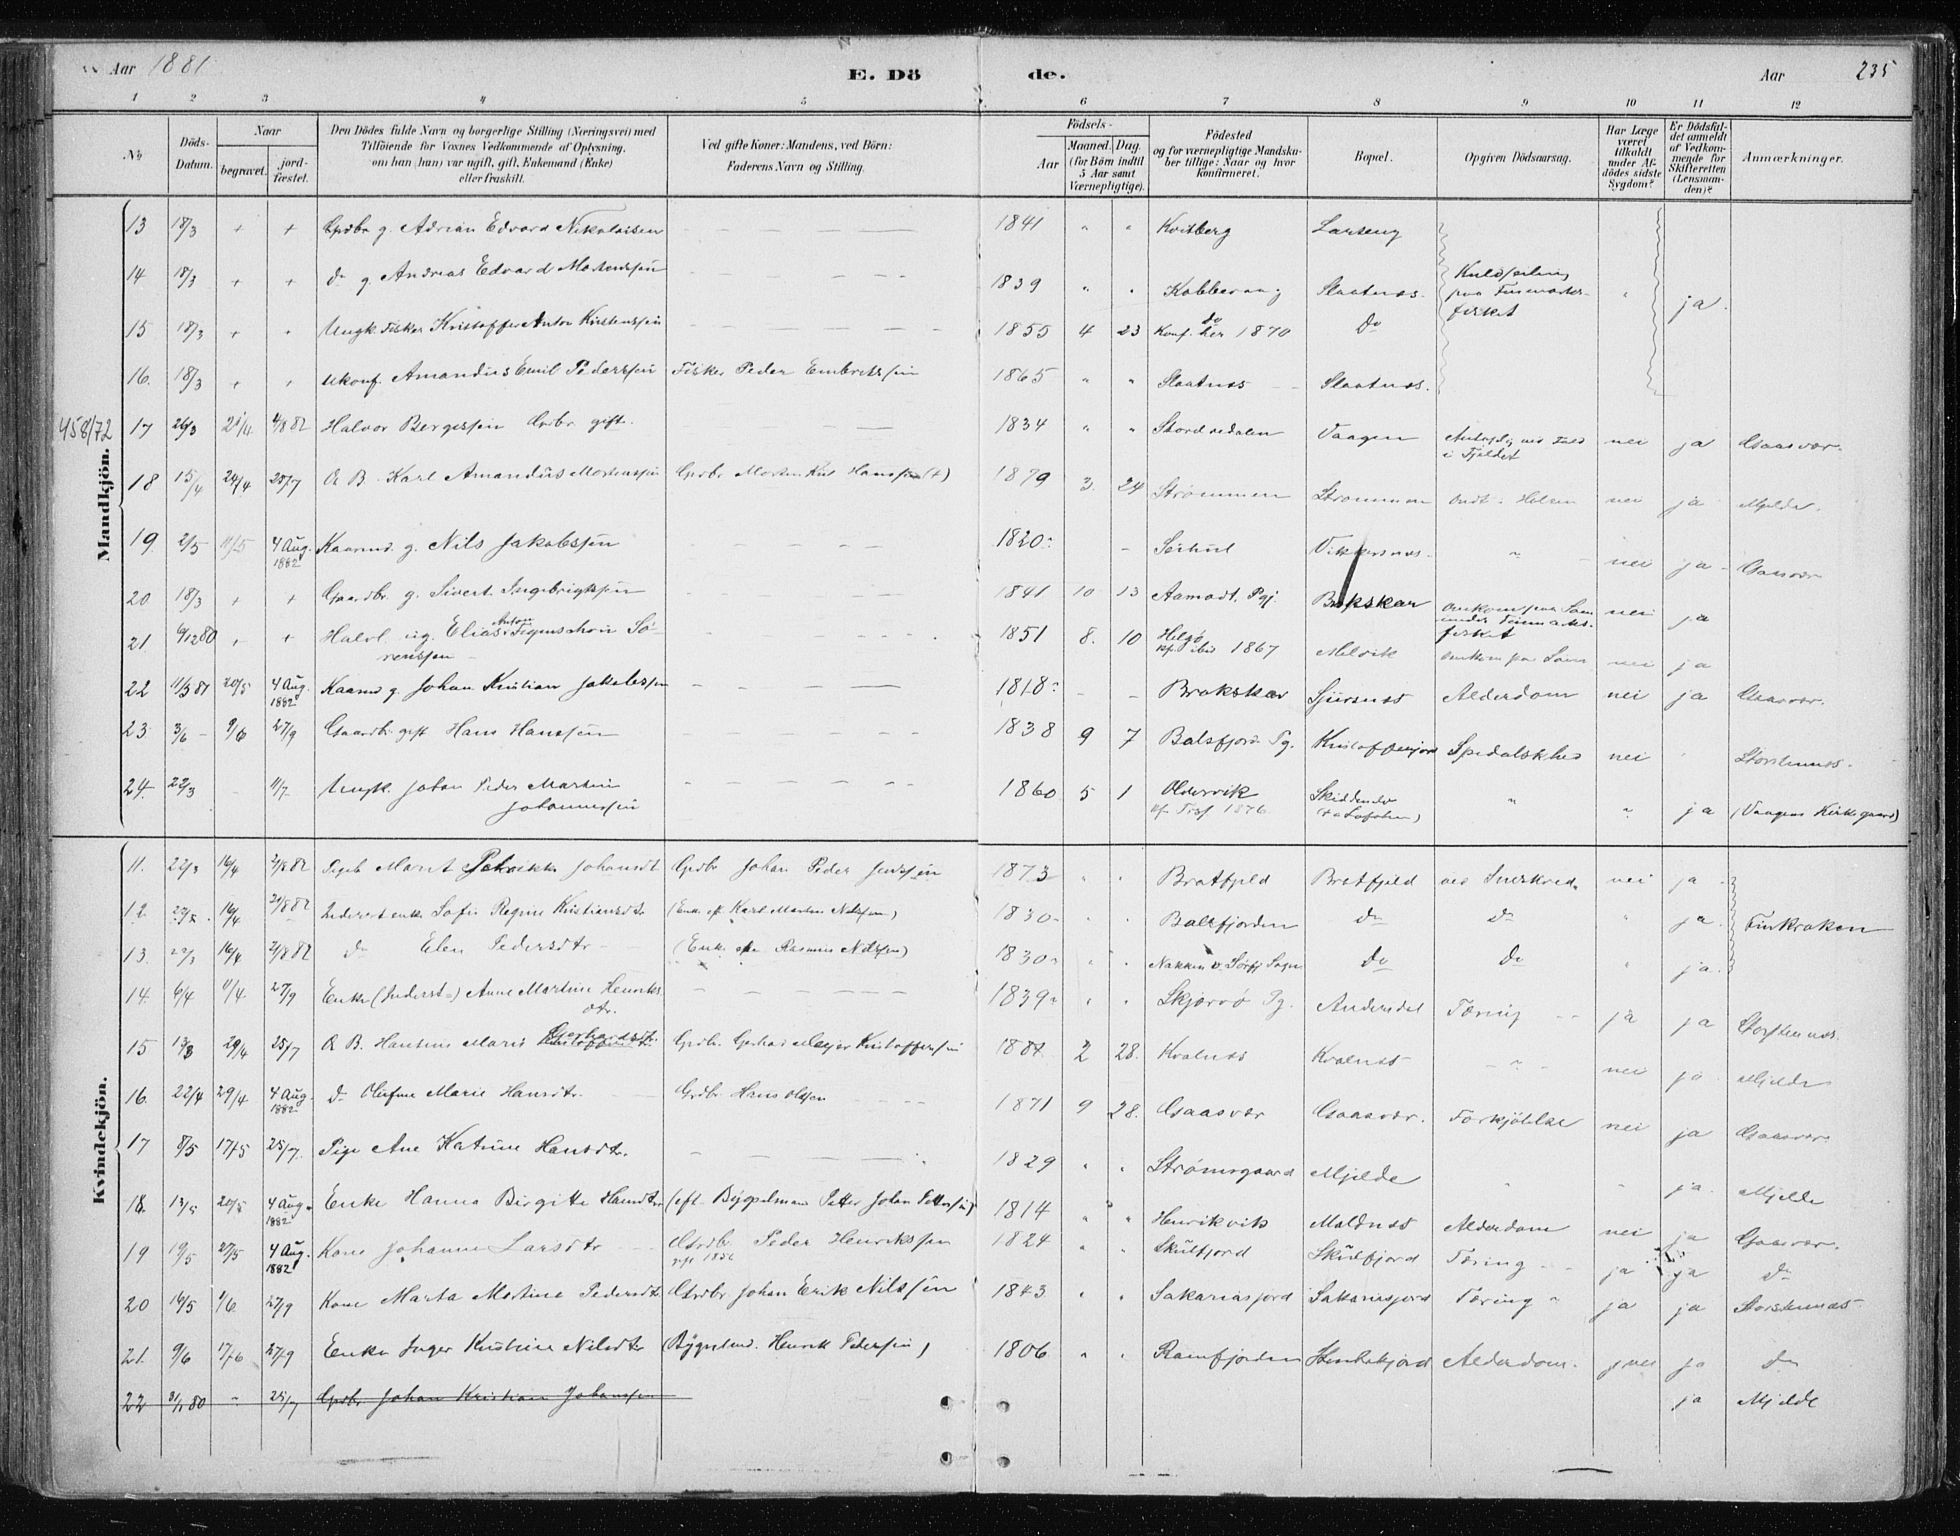 Aar 1881 E. Döde. Aar 235
1 2 3 4 5 6 7 8 9 10 11 12
No Döds-Datum. Naar begravet. jord-fæstet. Den Dödes fulde Navn og borgerlige Stilling (Næringsvei) med Tilföiende for Voxnes Vedkommende af Oplysning, om han (hun) var ugift, gift, Enkemand (Enke) eller fraskilt. Ved gifte Koner: Mandens, ved Börn: Faderens Navn og Stilling. Födsels- Aar Maaned. Dag. (for Börn indtil 5 Aar samt Værnepligtige). Födested og for værnepligtige Mandskaber tillige: Naar og hvor konfirmeret. Bopæl. Opgiven Dödsaarsag. Har Læge været tilkaldt under Afdödes sidste Sygdom? Er Dödsfaldet anmeldt af Vedkommende for Skifteretten (Lensmanden)? Anmærkninger.
Mandkjön.
13 18/3 + + Grdbr g. Adrian Edvard Nikolaisen 1841 " " Kvitberg Larseng
14 18/3 + + do g Andreas Edvard Mortenssen 1839 " " Kobbevaag Slaatnes. Kuldseiling paa Finmarks-fisket " ja.
15 18/3 + " Ungk Fisker Kristoffer Anton Kristenssen 1855 4 23 do Konf. her 1870 do
16. 18/3 + + ukonf. Amandus Emil Pederssen Fisker Peder Embrikssen 1865 " " Slaatnes Slaatnes.
458/72 17 26/3 21/4 4/8 82 Halvor Bergessen Grdbr. gift. 1834 " " Stordsdalen Vaagen i Fjeldet nei ja Gaasvær.
18 15/4 24/4 25/7 Karl Amandus Mortenssen Grdbr Morten Hanssen (+) 1879 3. 24 Strømmen Strømmen nei ja Mjelde.
19. 2/5 11/5 4 Aug. 1882 Kaarmd. g. Nils Jakobssen 1820 Vikkesnes. " nei ja Gaasvær
20 18/3 + + Gaardbr. g. Sivert Ingebrigtsen 1841 10 13 Aamodt Pgj. Bakskar omkom paa Søen under Finmarks-fisket nei ja
21 9/12 80 + + Halvl. ug. Elias Anton Sørenssen 1851 8. 10 Helgø 1867 Melvik omkom paa Søen nei ja
22 11/5 81 20/5 4 Aug. 1882 Kaarmd g. Johan Kristian Jakobssen 1818 Brokskar Sjursnes Alderdom nei ja Gaasvær.
23 3/6 9/6 27/9 Gaardbr gift Hans Hanssen 1838 9 7 Balsfjord Pg. Kristoffenjord Spedalskhed nei Storstennes.
24. 22/3 11/7 Ungk. Johan Peder Martin Johannessen 1860 5 1 Oldervik kf. Trsø 1876 " " ja (Vaagens Kirkegaard)
Kvindekjön.
11. 22/3 16/4 2/8 82 Pige Marit Petrikke Johansdt Grdbr Johan Peder Jenssen 1873 " " Bratfjeld Bratfjeld ved Sneskred. nei ja
12. 22/3. 16/4 2/8 82 Inderst enke Sofie Regine Kristiansdtr (Enke eft Karl Morten Nilssen) 1830 " " Balsfjorden do do " ja. Finkroken
13. 22/3 16/4 2/8 82 do Elen Pedersdtr (Enke efter Rasmus Nilssen) 1830 " " Nakken v. Sørfj Sogn do do " ja.
14. 6/4 11/4. 27/9 Enke (Inderst) Anne Martine Henriksdtr. 1839 " " Skjervø Pg. Andersdal Tæring ja ja Storstennes.
15 13/3 29/4 25/7 Hansine Marie Gerhardsdt. Grdbr. Gerhard Meyer Kristofferssen 1881 2 28. Kvalnes Kvalnes " nei ja Mjelde
16. 22/4 29/4 4 Aug. 1882 do Olufine Marie Hansdtr. Grdbr Hans Olssen 1871 9 28. Gaasvær Gaasvær. Forkjølelse nei ja Gaasvær.
17 8/5 17/5 25/7. Pige Ane Katrine Hansdtr. 1829 " " Strømsgaard Mjelde " " ja Mjelde
18. 13/5 20/5 4 Aug. 1882 Enke Hanna Birgitte Hansdtr (eft. Bygselmand Petter Johan Petterssen) 1814 " " Henrikvik Maldnes Alderdom nei ja Gaasvær.
19 19/5 27/5 4 Aug. 1882 Kone Johanne Larsdtr Grdbr. Peder Henrikssen gift 1856 1824 " " Skulfjord Skulfjord Tæring ja ja do
20 16/5 1/6. 27/9 Kone Marta Martine Pedersdtr Grdbr Johan Erik Nilssen 1843 " " Sakariasjord Sakariasjord Tæring " ja ja Storstennes
21. 9/6 17/6 27/9 Enke Inger Kristine Nilsdtr (Bygselmd. Henrik Pederssen) 1806 " " Ramfjorden Alderdom. nei ja do
22 3/1 80 " 25/7 Grdbr Johan Kristian Johanssen ja Mjelde